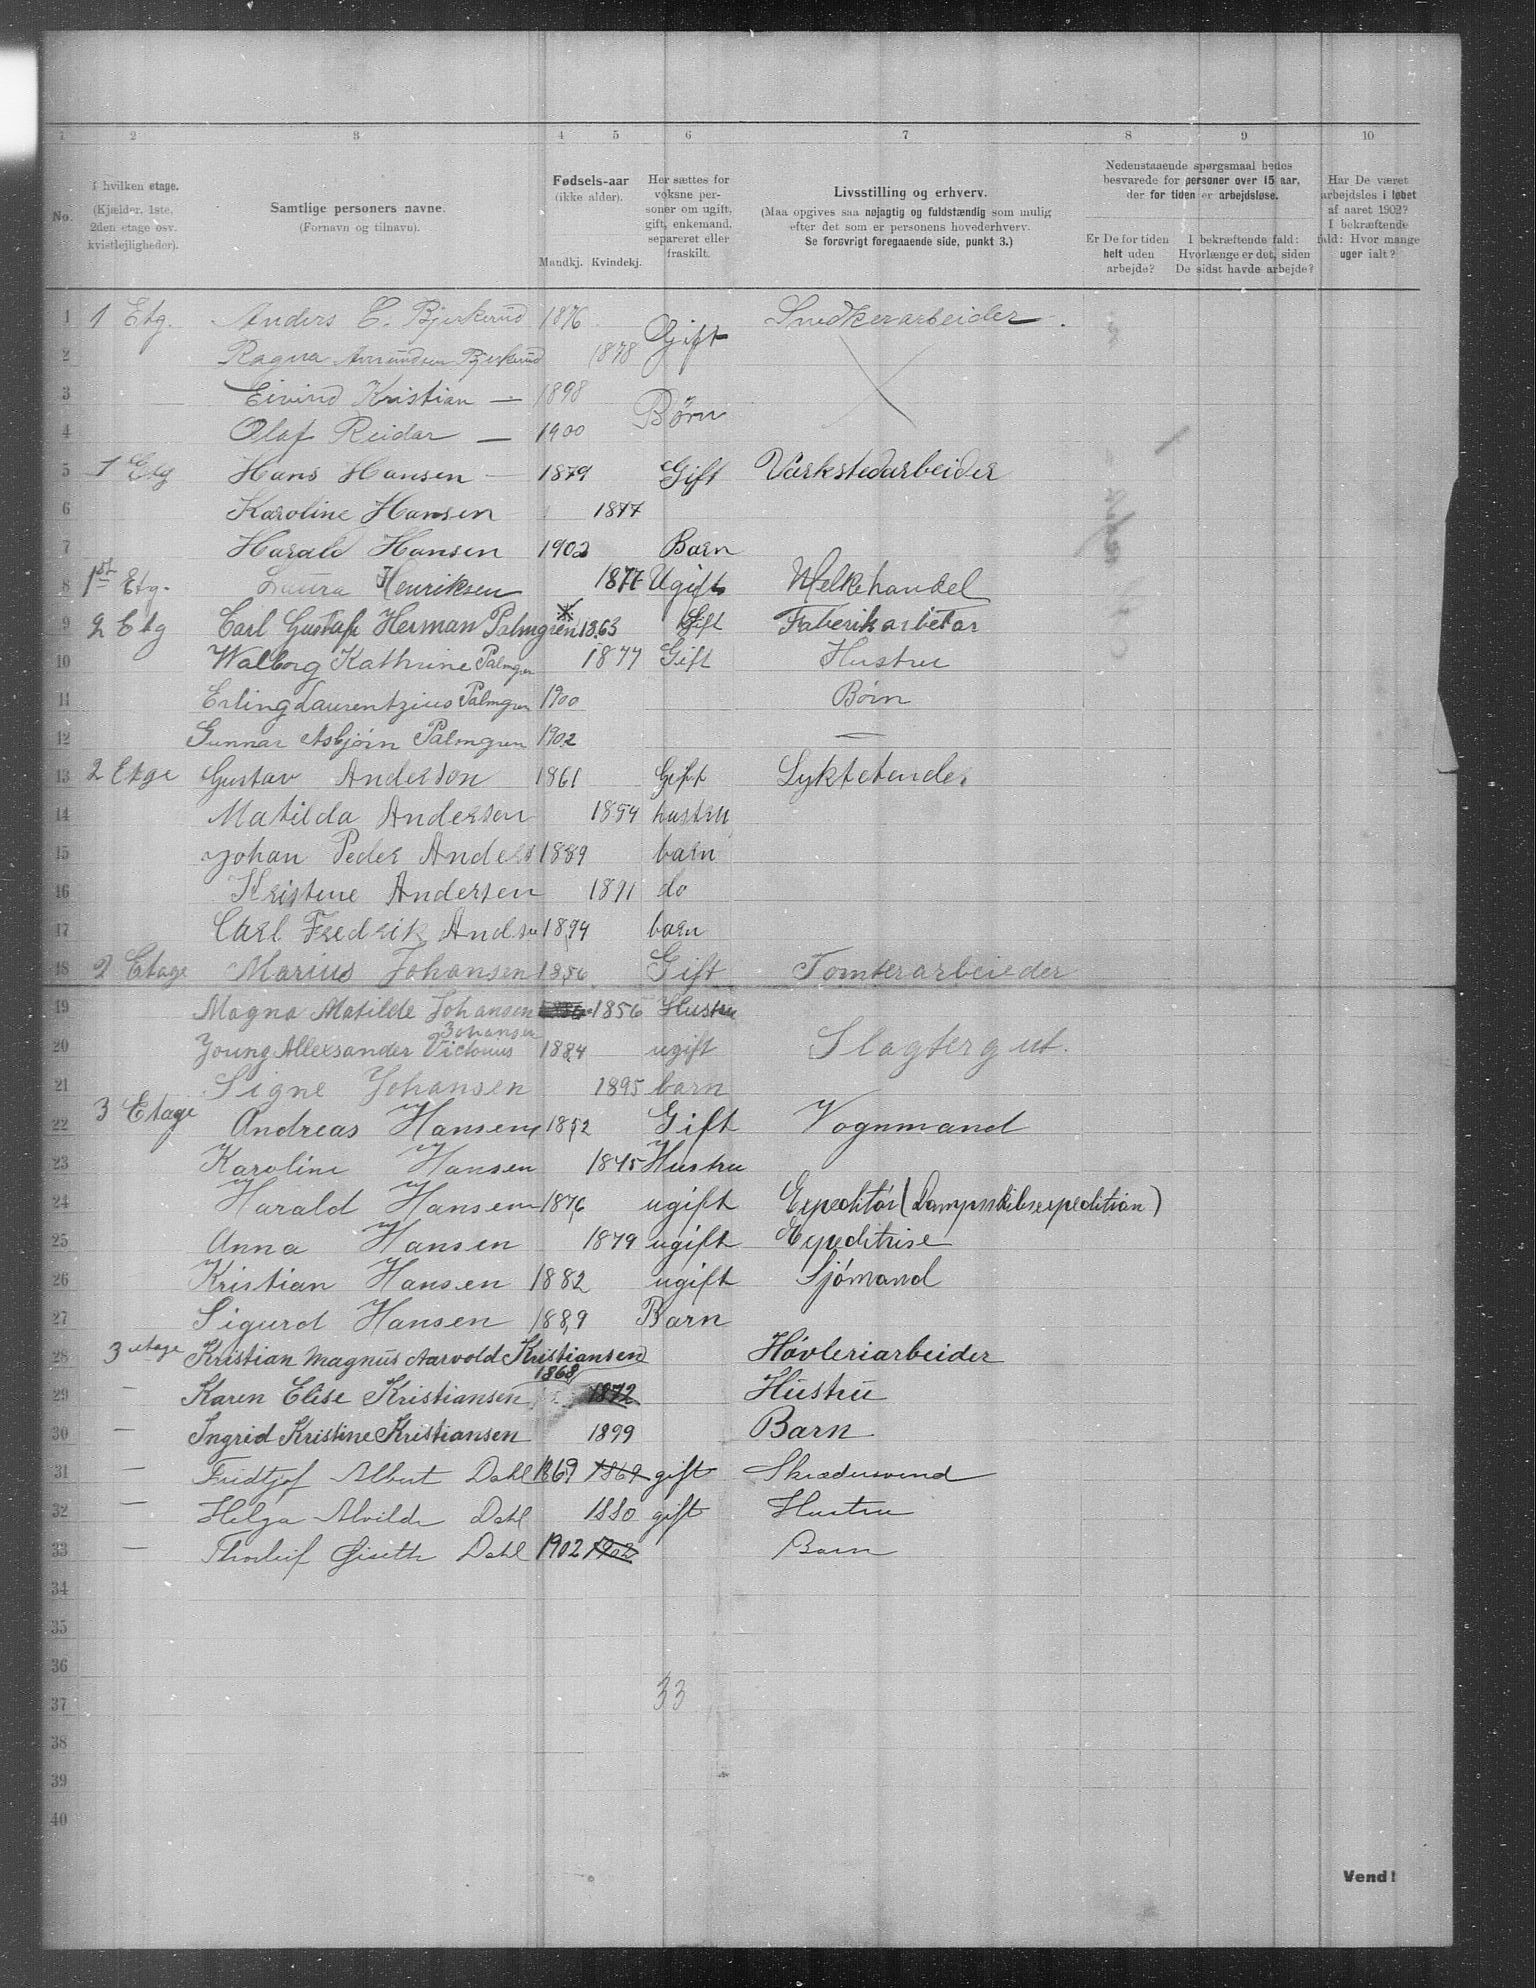 1 2 3 4 5 6 7 8 9 10
No.
I hvilken etage.
(Kjælder, 1ste, 2den etage osv. kvistlejligheder).
Samtlige personers navne.
(Fornavn og tilnavn).
Fødsels-aar
(ikke alder).
Mandkj. Kvindekj.
Her sættes for voksne personer om ugift, gift, enkemand, separeret eller fraskilt.
Livsstilling og erhverv.
(Maa opgives saa nøjagtig og fuldstændig som mulig efter det som er personens hovederhverv.
Se forøvrigt foregaaende side, punkt 3.)
Nedenstaaende spørgsmaal bedes besvarede for personer over 15 aar, der for tiden er arbejdsløse.
Er De for tiden helt uden arbejde?
I bekræftende fald: Hvorlænge er det, siden De sidst havde arbejde?
Har De været arbejdsløs i løbet af aaret 1902? I bekræftende fald: Hvor mange uger ialt?
1 1 Etg. Anders E. Bjerkerud 1876 Gift Snedkerarbeider
2 Ragna Amundsen Bjerkerud 1878
3 Eivind Kristian — 1898 Børn
4 Olaf Reidar — 1900
5 1 Etg Hans Hansen — 1879 Gift Værkstedarbeider
6 Karoline Hansen 1877
7 Harald Hansen 1902 Barn
8 1st Etg. Laura Henriksen 1877 Ugift Melkehandel
9 2 Etg Carl Gustaf Herman Palmgren 1863 Gift Faberikarbetar
10 Walborg Kathrine Palmgren 1877 Gift Hustru
11 Erling Laurentzius Palmgren 1900 Børn
12 Gunnar Asbjørn Palmgren 1902 —
13 2 Etge Gustav Anderson 1861 Gift Lyktetender
14 Matilda Andersen 1854 hustru
15 Johan Peder Anders 1889 barn
16 Kristine Andersen 1891 do
17 Carl Fredrik Andsn 1894 barn
18 2 Etage Marius Johansen 1856 Gift Tomterarbeieder
19 Magna Matilde Johansen 1856 Hustru
20 Young Allexsander Victorius Johansen 1884 ugift Slagtergut.
21 Signe Johansen 1895 barn
22 3 Etage Andreas Hansen 1852 Gift Vognmand
23 Karoline Hansen 1845 Hustru
24 Harald Hansen 1876 ugift Expeditör (Dampskibsexpedition)
25 Anna Hansen 1879 ugift Expeditrise
26 Kristian Hansen 1882 ugift Sjómand
27 Sigurd Hansen 1889 Barn
28 3 etage Kristian Magnus Aarvold Kristiansen 1868 Høvleriarbeider
29 — Karen Elise Kristiansen 1872 Hustru
30 — Ingrid Kristine Kristiansen 1899 Barn
31 — Fridtjof Albert Dahl 1869 1869 gift Skrædersvend
32 — Helga Alvilde Dahl 1880 gift Hustru
33 — Thorleif Giseth Dahl 1902 1902 Barn
34
35
36
37 33
38
39
40
Vend!